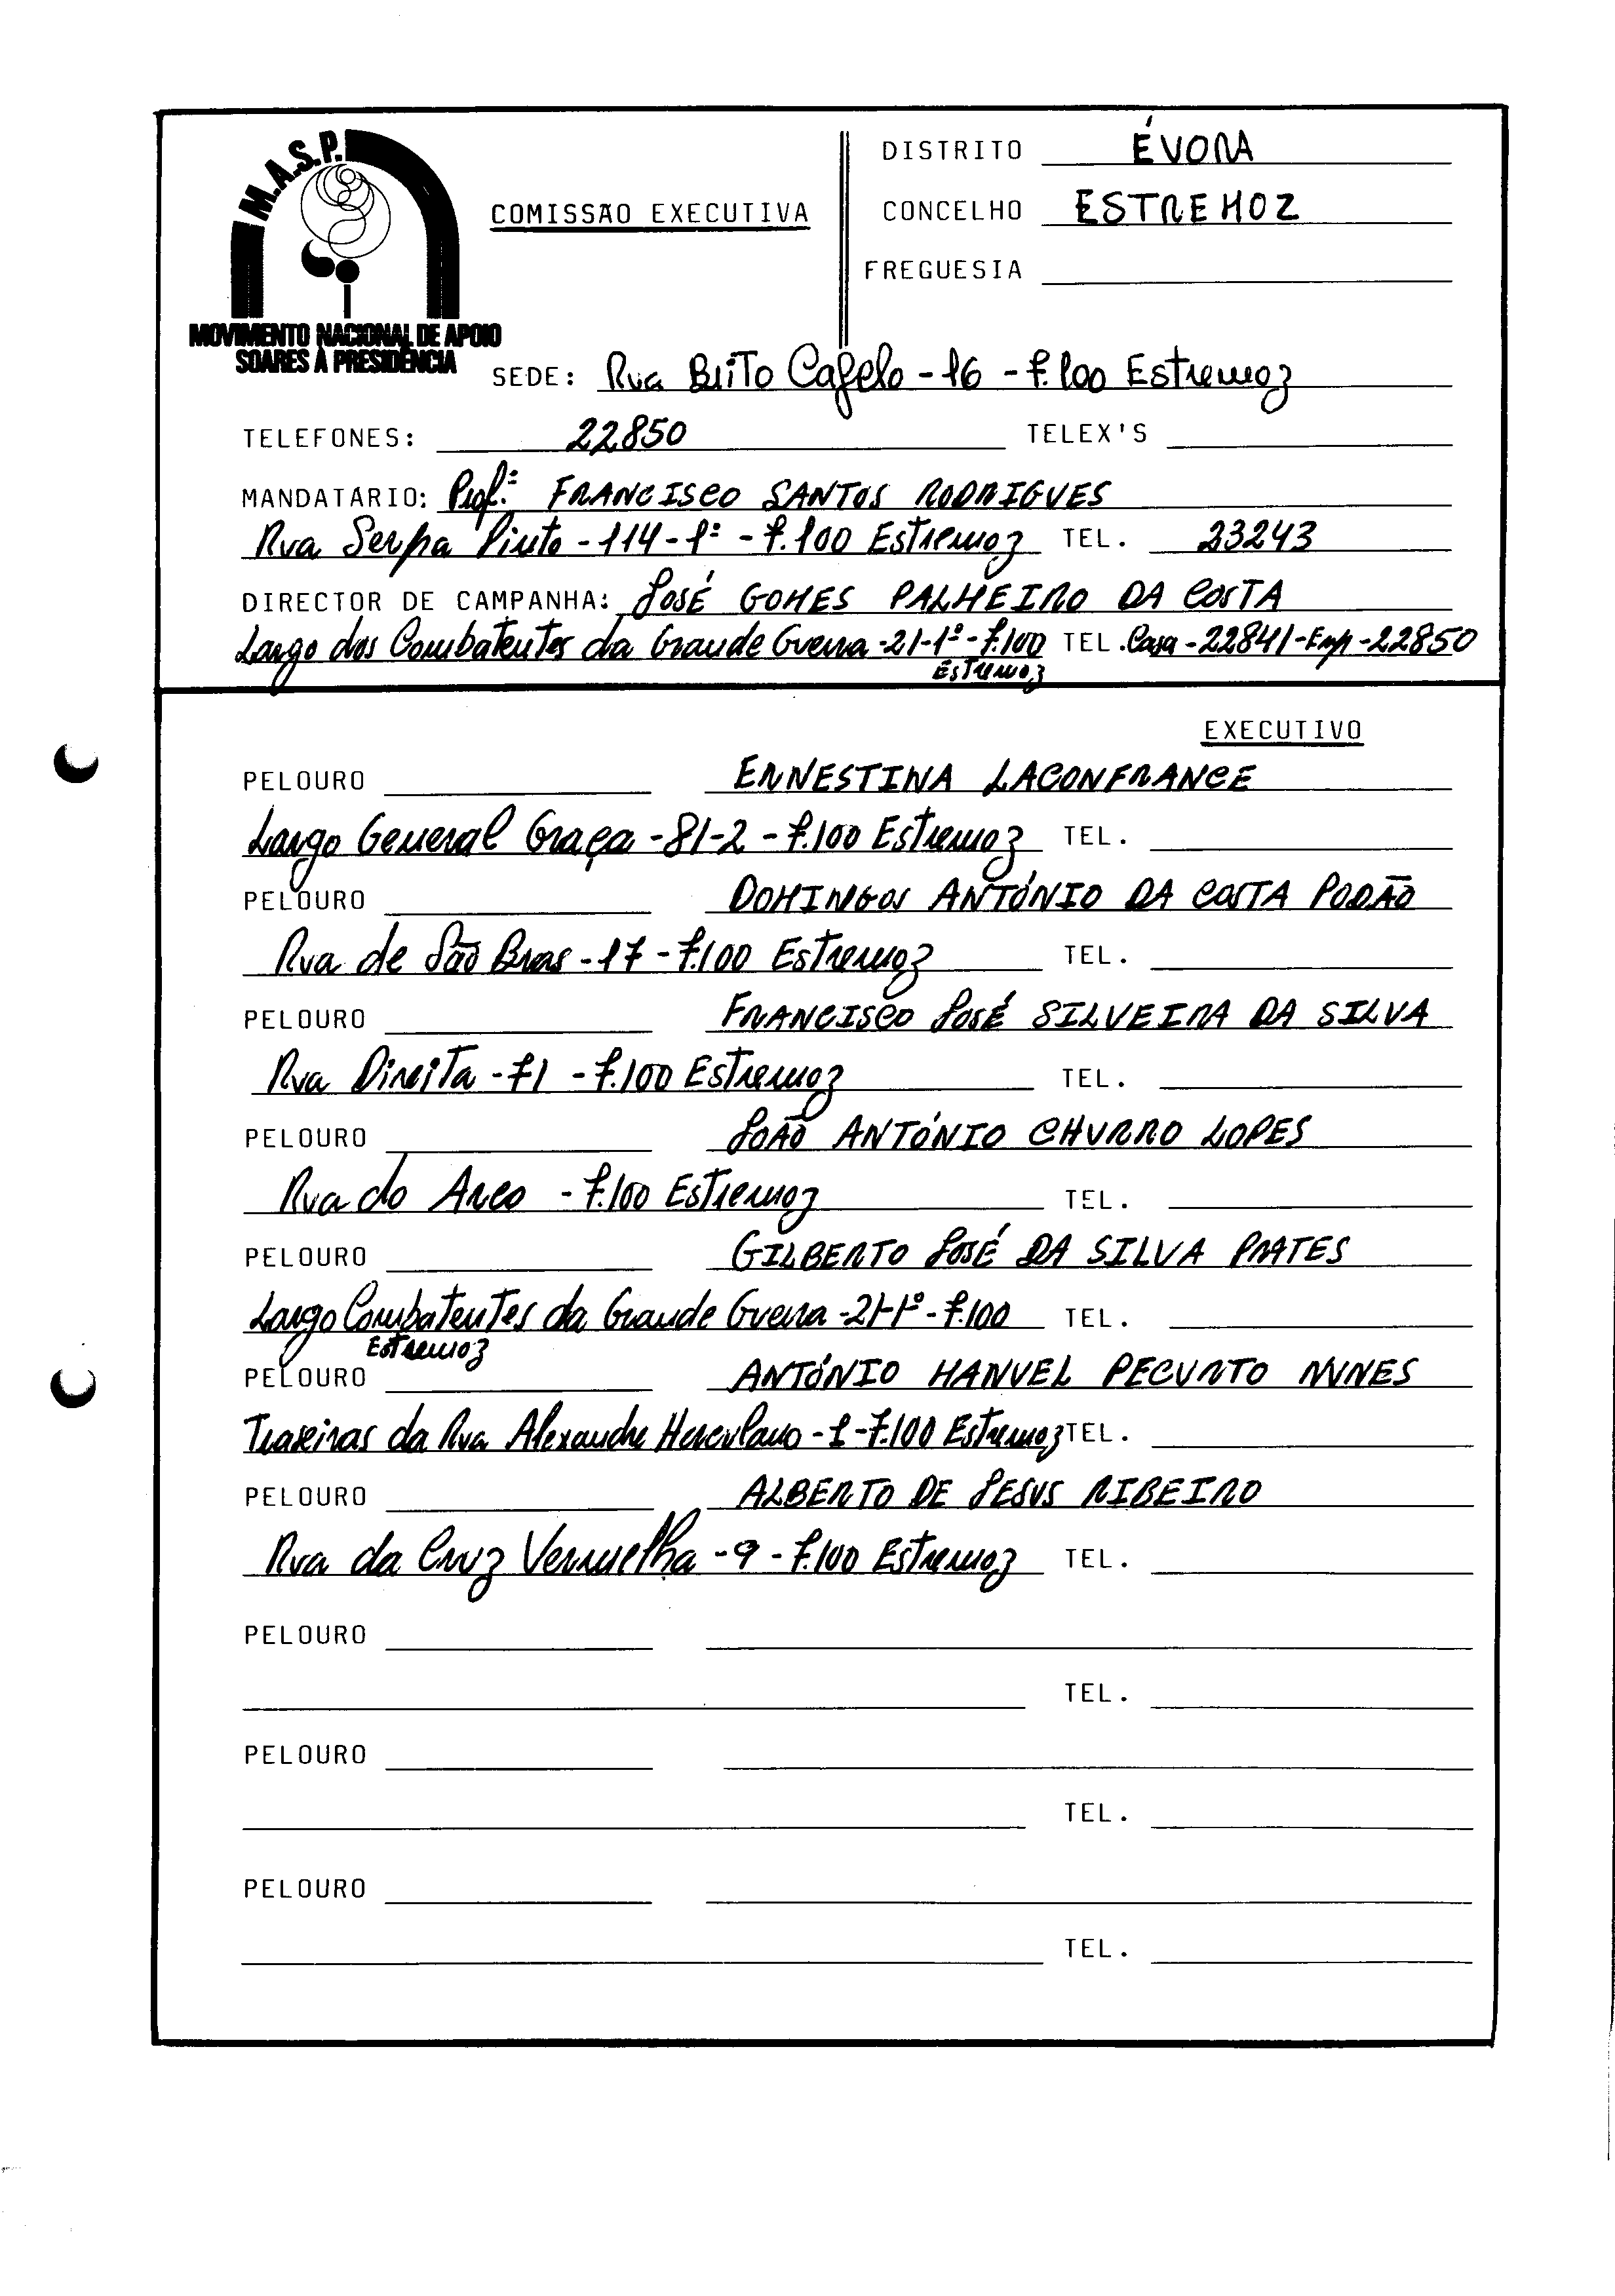 M.A.S.P.
MOVIMENTO NACIONAL DE APOIO
SOARES À PRESIDÊNCIA
COMISSÃO EXECUTIVA
DISTRITO ÉVORA
CONCELHO ESTREMOZ
FREGUESIA
SEDE: Rua Brito Capelo - 16 - 7.100 Estremoz
TELEFONES: 22850 TELEX'S
MANDATARIO: Prof.: FRANCISCO SANTOS RODRIGUES
Rua Serpa Pinto - 114 - 1º - 7.100 Estremoz TEL. 23243
DIRECTOR DE CAMPANHA: JOSÉ GOMES PALHEIRO DA COSTA
Largo dos Combatentes da Grande Guerra - 21-1º - 7.100 TEL. Casa - 22841 - Emp - 22850
Estremoz
EXECUTIVO
PELOURO ERNESTINA LACONFRANCE
Largo General Graça - 81-2 - 7.100 Estremoz TEL.
PELOURO DOMINGOS ANTÓNIO DA COSTA PODÃO
Rua de São Bras - 17 - 7.100 Estremoz TEL.
PELOURO FRANCISCO JOSÉ SILVEIRA DA SILVA
Rua Direita - 71 - 7.100 Estremoz TEL.
PELOURO JOÃO ANTÓNIO CHURRO LOPES
Rua do Arco - 7.100 Estremoz TEL.
PELOURO GILBERTO JOSÉ DA SILVA PRATES
Largo Combatentes da Grande Guerra - 21-1º - 7.100 TEL.
Estremoz
PELOURO ANTÓNIO MANUEL PECURTO NUNES
Traseiras da Rua Alexandre Herculano - 1 - 7.100 Estremoz TEL.
PELOURO ALBERTO DE JESUS RIBEIRO
Rua da Cruz Vermelha - 9 - 7.100 Estremoz TEL.
PELOURO
TEL.
PELOURO
TEL.
PELOURO
TEL.